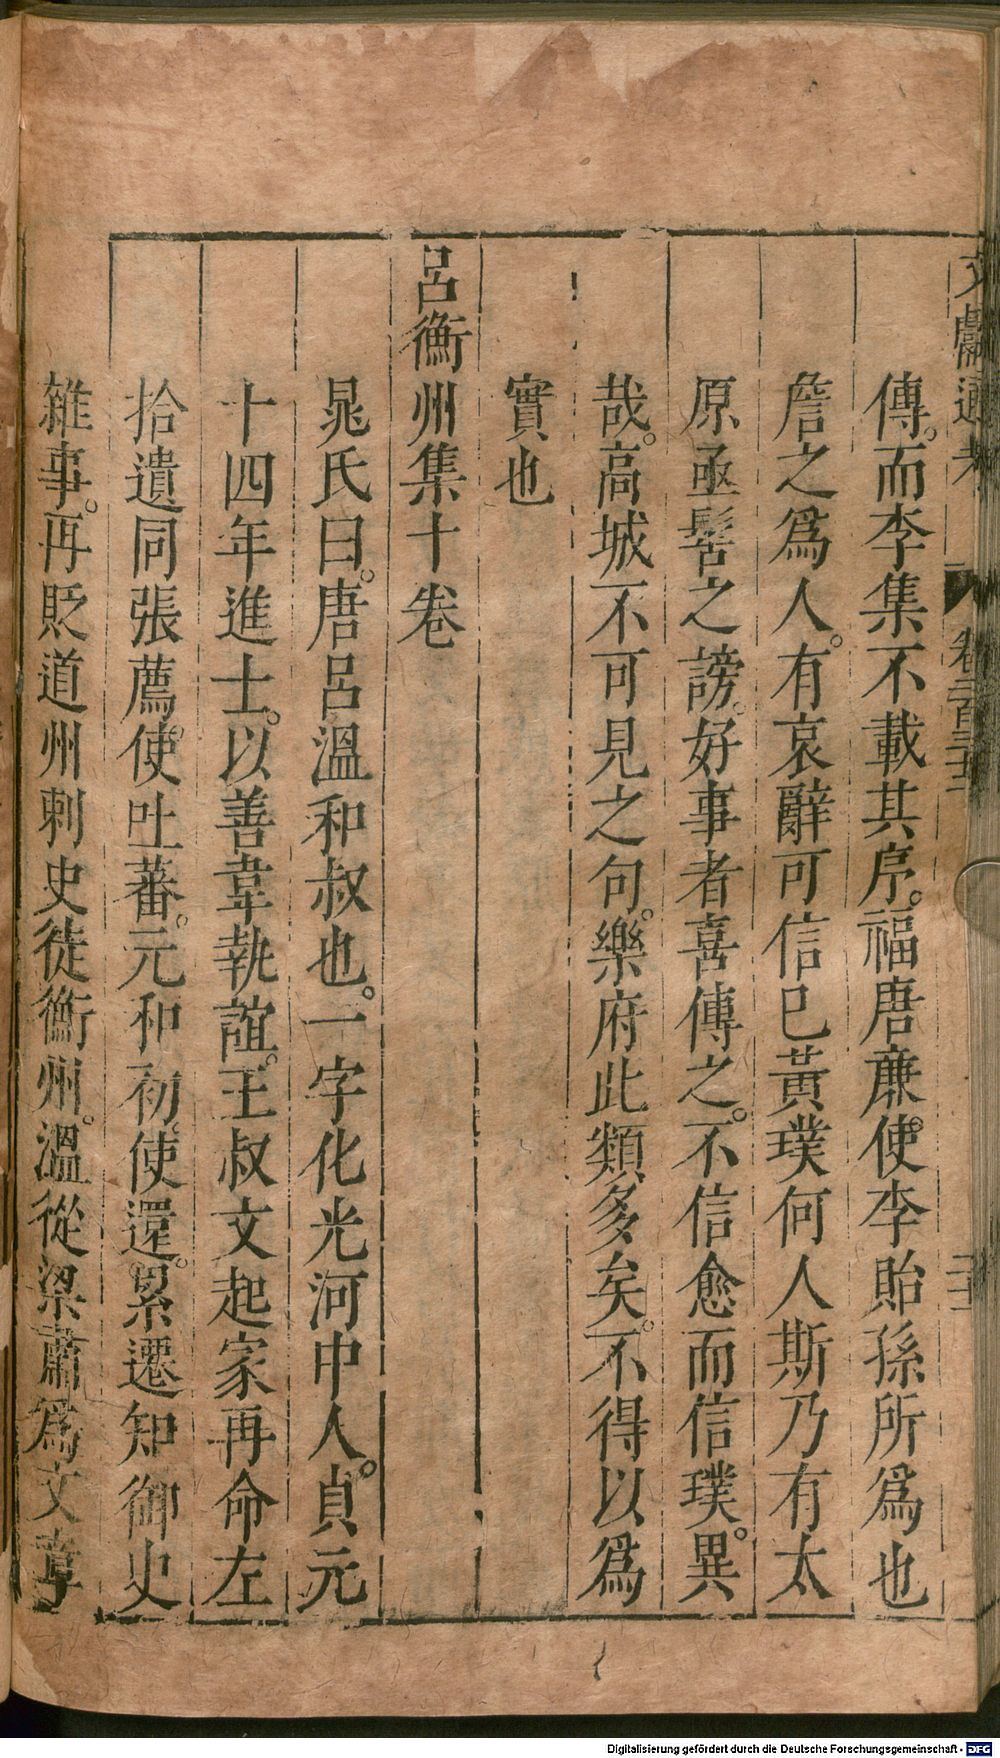 文獻通考 卷二百三十二
傳。而李集不載其序。福唐廉使李貽孫所爲也
詹之爲人。有哀辭可信巳黃璞何人斯乃有太
原亟髻之謗。好事者喜傳之。不信愈而信璞。異
哉。高城不可見之句。樂府此類多矣。不得以爲
實也
呂衡州集十卷
晁氏曰。唐呂溫和叔也。一字化光河中人。貞元
十四年進士。以善韋執誼。王叔文起家再命左
拾遺同張薦使吐蕃。元和初。使還。累遷知御史
雜事。再貶道州刺史徒衡州。溫從梁肅爲文章
Digitalisierung gefördert durch die Deutsche Forschungsgemeinschaft - DFG